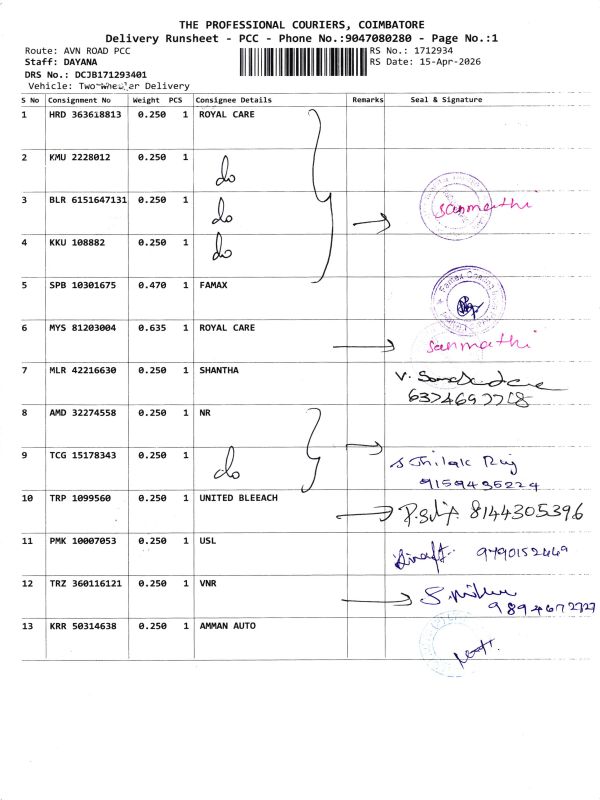 THE PROFESSIONAL COURIERS, COIMBATORE
Delivery Runsheet - PCC - Phone No.:9047080280 - Page No.:1
Route: AVN ROAD PCC RS No.: 1712934
Staff: DAYANA RS Date: 15-Apr-2026
DRS No.: DCJB171293401
Vehicle: Two-Wheeler Delivery
S No Consignment No Weight PCS Consignee Details Remarks Seal & Signature
1 HRD 363618813 0.250 1 ROYAL CARE
2 KMU 2228012 0.250 1 do
3 BLR 6151647131 0.250 1 do sanmathi
4 KKU 108882 0.250 1 do
5 SPB 10301675 0.470 1 FAMAX
6 MYS 81203004 0.635 1 ROYAL CARE sanmathi
7 MLR 42216630 0.250 1 SHANTHA
8 AMD 32274558 0.250 1 NR
9 TCG 15178343 0.250 1 do
9159495224
10 TRP 1099560 0.250 1 UNITED BLEEACH 8144305396
11 PMK 10007053 0.250 1 USL
12 TRZ 360116121 0.250 1 VNR
13 KRR 50314638 0.250 1 AMMAN AUTO